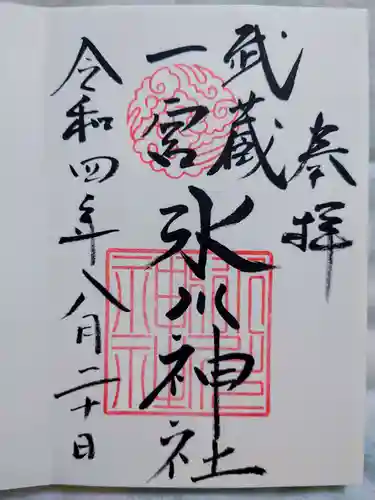 奉拝
武蔵
一宮
氷川神社
令和四年八月二十日
氷川神社